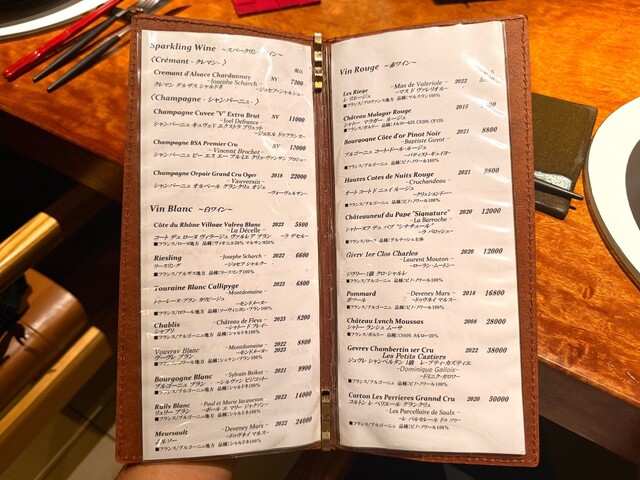 Sparkling Wine ～スパークリン　イン～
〈Crémant - クレマン - 〉
税込
Cremant d'Alsace Chardonnay NV 7200
～Josephe Scharch～
クレマン ダルザス シャルドネ ～ジョセフ・シャルシュ～
〈Champagne - シャンパーニュ - 〉
Champagne Cuvee "V" Extra Brut NV 11000
～Joel Defrance～
シャンパーニュ キュヴェV エクストラ ブリュット
～ジョエル ドゥフランス～
Champagne BSA Premier Cru NV 12000
～Vincent Brochet～
シャンパーニュ ビー エス エー プルミエ クリュ
Champagne Orpair Grand Cru Oger 2018 22000
～Vauversin～
シャンパーニュ オルペール グランクリュ オジェ
～ヴォーヴェルサン～
Vin Blanc ～白ワイン～
Côte du Rhône Village Valrea Blanc 2023 5800
～La Décelle～
コート デュ ローヌ ヴィラージュ ヴァルレア ブラン ～ラ デセル～
■フランス/ローヌ地方
Riesling ～Josephe Scharch～ 2022 6600
リースリング ～ジョセフ シャルク～
■フランス/アルザス地方 品種:リースリング100%
Touraine Blanc Callipyge 2023 6800
～Montdomaine～
トゥーレーヌ ブラン カリピージュ ～モンドメーヌ～
■フランス/ロワール地方 品種:ソーヴィニヨン・ブラン100%
Chablis ～Château de Fleys～ 2023 8200
シャブリ ～シャトー ド フレイ～
■フランス/ブルゴーニュ地方 品種:シャルドネ100%
Vouvray Blanc ～Montdomaine～ 2022 8800
ヴーヴレ ブラン ～モンドメーヌ～ 2023
Bourgogne Blanc ～Sylvain Bzikot～ 2021 9900
ブルゴーニュ ブラン ～シルヴァン ビジコット～
■フランス/ブルゴーニュ地方 品種:シャルドネ100%
Rully Blanc ～Paul et Marie Jacqueson～ 2022 14000
リュリー ブラン ～ポール エ マリー ジャクソン～
■フランス/ブルゴーニュ地方 品種:シャルドネ100%
Meursault ～Deveney Mars～ 2022 24000
ムルソー ～ドゥヴネイ マルス～
■フランス/ブルゴーニュ地方 品種:シャルドネ100%
Vin Rouge ～赤ワイン～ 税込
Les Riege ～Mas de Valeriole～ 2022
レ リエージュ ～マス ド ヴァレリオル～
■フランス/プロヴァンス地方 品種:マルスラン100%
Château Malagar Rouge 2015
シャトー マラガー ルージュ
■フランス/ボルドー
Bourgogne Côte d'or Pinot Noir 2021 8800
～Baptiste Guyot～
ブルゴーニュ コート・ドール・ルージュ
～バティスト・ギュイヨ～
■フランス/ブルゴーニュ 品種:ピノ・ノワール100%
Hautes Cotes de Nuits Rouge 2021 9800
～Cruchandeau～
オート コート ド ニュイ ルージュ ～クリュションドー～
■フランス/ブルゴーニュ 品種:ピノ・ノワール100%
Châteauneuf du Pape "Signature" 2020 12000
～La Barroche～
シャトーヌフ デュ パプ "シナチュール" ～ラ バロッシュ～
■フランス/ローヌ 品種:グルナッシュ主体
Givry 1er Clos Charles 2020 12000
～Laurent Mouton～
ジヴリー1級 クロ・シャルレ ～ローラン・ムートン～
■フランス/ブルゴーニュ 品種:ピノ・ノワール100%
Pommard ～Deveney Mars～ 2018 16800
ポマール ～ドゥヴネイ マルス～
■フランス/ブルゴーニュ 品種:ピノ・ノワール100%
Château Lynch Moussas 2008 28000
シャトー ランシュ ムーサ
■フランス/ボルドー
Gevrey Chambertin 1er Cru 2022 38000
Les Petits Caztiers
ジュヴレ シャンベルタン 1級 レ・プティ・カズティエ
～Dominique Gallois～
～ドミニク・ガロワ～
■フランス/ブルゴーニュ 品種:ピノ・ノワール100%
Corton Les Perrieres Grannd Cru 2020 50000
コルトン レ ペリエール グランクリュ
～Les Parcellaire de Saulx～
～レ パルセレール ド ゥソー～
■フランス/ブルゴーニュ 品種:ピノ・ノワール100%